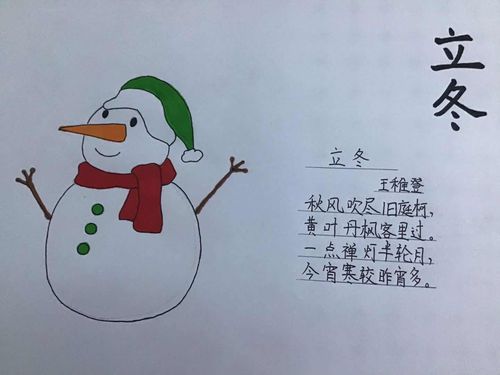 立冬
立冬
王稚登
秋风吹尽旧庭柯，
黄叶丹枫客里过。
一点禅灯半轮月，
今宵寒较昨宵多。